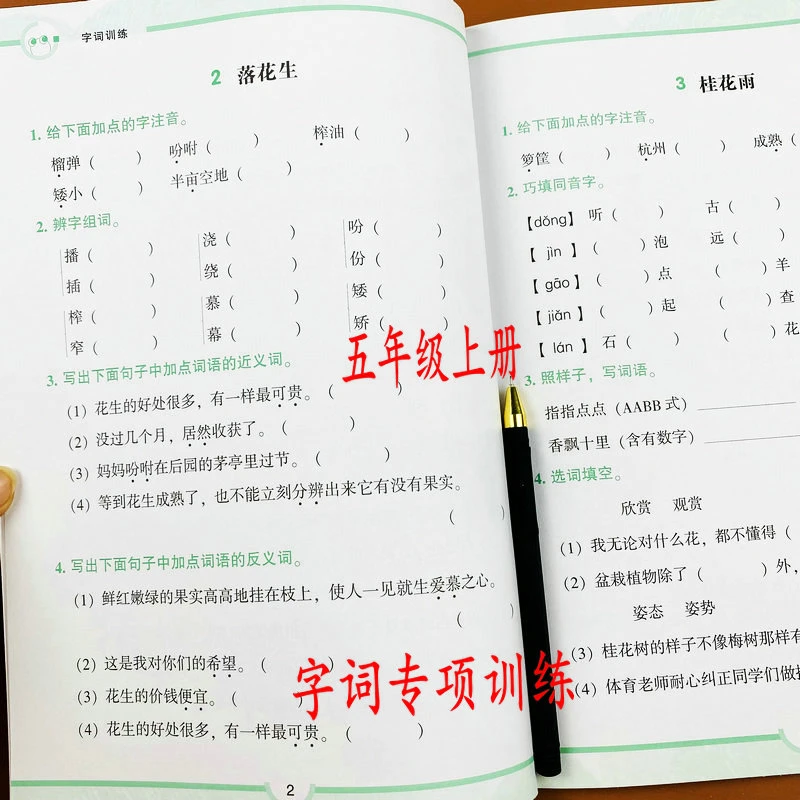 字词训练
2 落花生
1. 给下面加点的字注音。
榴弹（ ） 吩咐（ ） 榨油（ ）
矮小（ ） 半亩空地（ ）
2. 辨字组词。
播（ ） 浇（ ） 吩（ ）
插（ ） 绕（ ） 份（ ）
榨（ ） 慕（ ） 矮（ ）
窄（ ） 幕（ ） 矫（ ）
3. 写出下面句子中加点词语的近义词。
（1）花生的好处很多，有一样最可贵。（ ）
（2）没过几个月，居然收获了。（ ）
（3）妈妈吩咐在后园的茅亭里过节。（ ）
（4）等到花生成熟了，也不能立刻分辨出来它有没有果实。
（ ）
4. 写出下面句子中加点词语的反义词。
（1）鲜红嫩绿的果实高高地挂在枝上，使人一见就生爱慕之心。
（ ）
（2）这是我对你们的希望。（ ）
（3）花生的价钱便宜。（ ）
（4）花生的好处很多，有一样最可贵。（ ）
2
3 桂花雨
1. 给下面加点的字注音。
箩筐（ ） 杭州（ ） 成熟（
2. 巧填同音字。
【dǒng】 听（ ） 古（ ）
【jìn】（ ）泡 远（ ）
【gāo】（ ）点 （ ）羊
【jiǎn】（ ）起 （ ）查
【lán】 石（ ） （ ）花
3. 照样子，写词语。
指指点点（AABB 式）
香飘十里（含有数字）
4. 选词填空。
欣赏 观赏
（1）我无论对什么花，都不懂得（
（2）盆栽植物除了（ ）外，
姿态 姿势
（3）桂花树的样子不像梅树那样有
（4）体育老师耐心纠正同学们做
五年级上册
字词专项训练